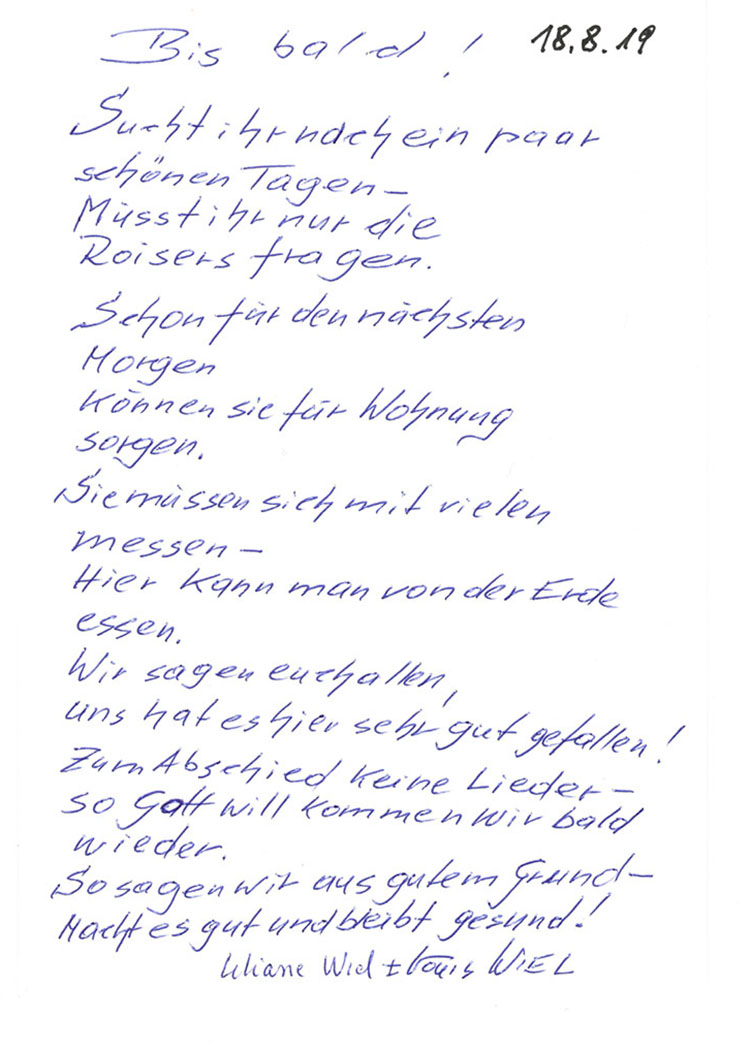 Bis bald! 18.8.19
Sucht ihr nach ein paar
schönen Tagen–
Müsst ihr nur die
Roisers fragen.
Schon für den nächsten
Morgen
können sie für Wohnung
sorgen.
Sie müssen sich mit vielen
messen–
Hier kann man von der Erde
essen.
Wir sagen euch allen,
uns hat es hier sehr gut gefallen!
Zum Abschied keine Lieder–
so Gott will kommen wir bald
wieder.
So sagen wir aus gutem Grund–
Macht es gut und bleibt gesund!
Liliane Wiel + Louis WIEL